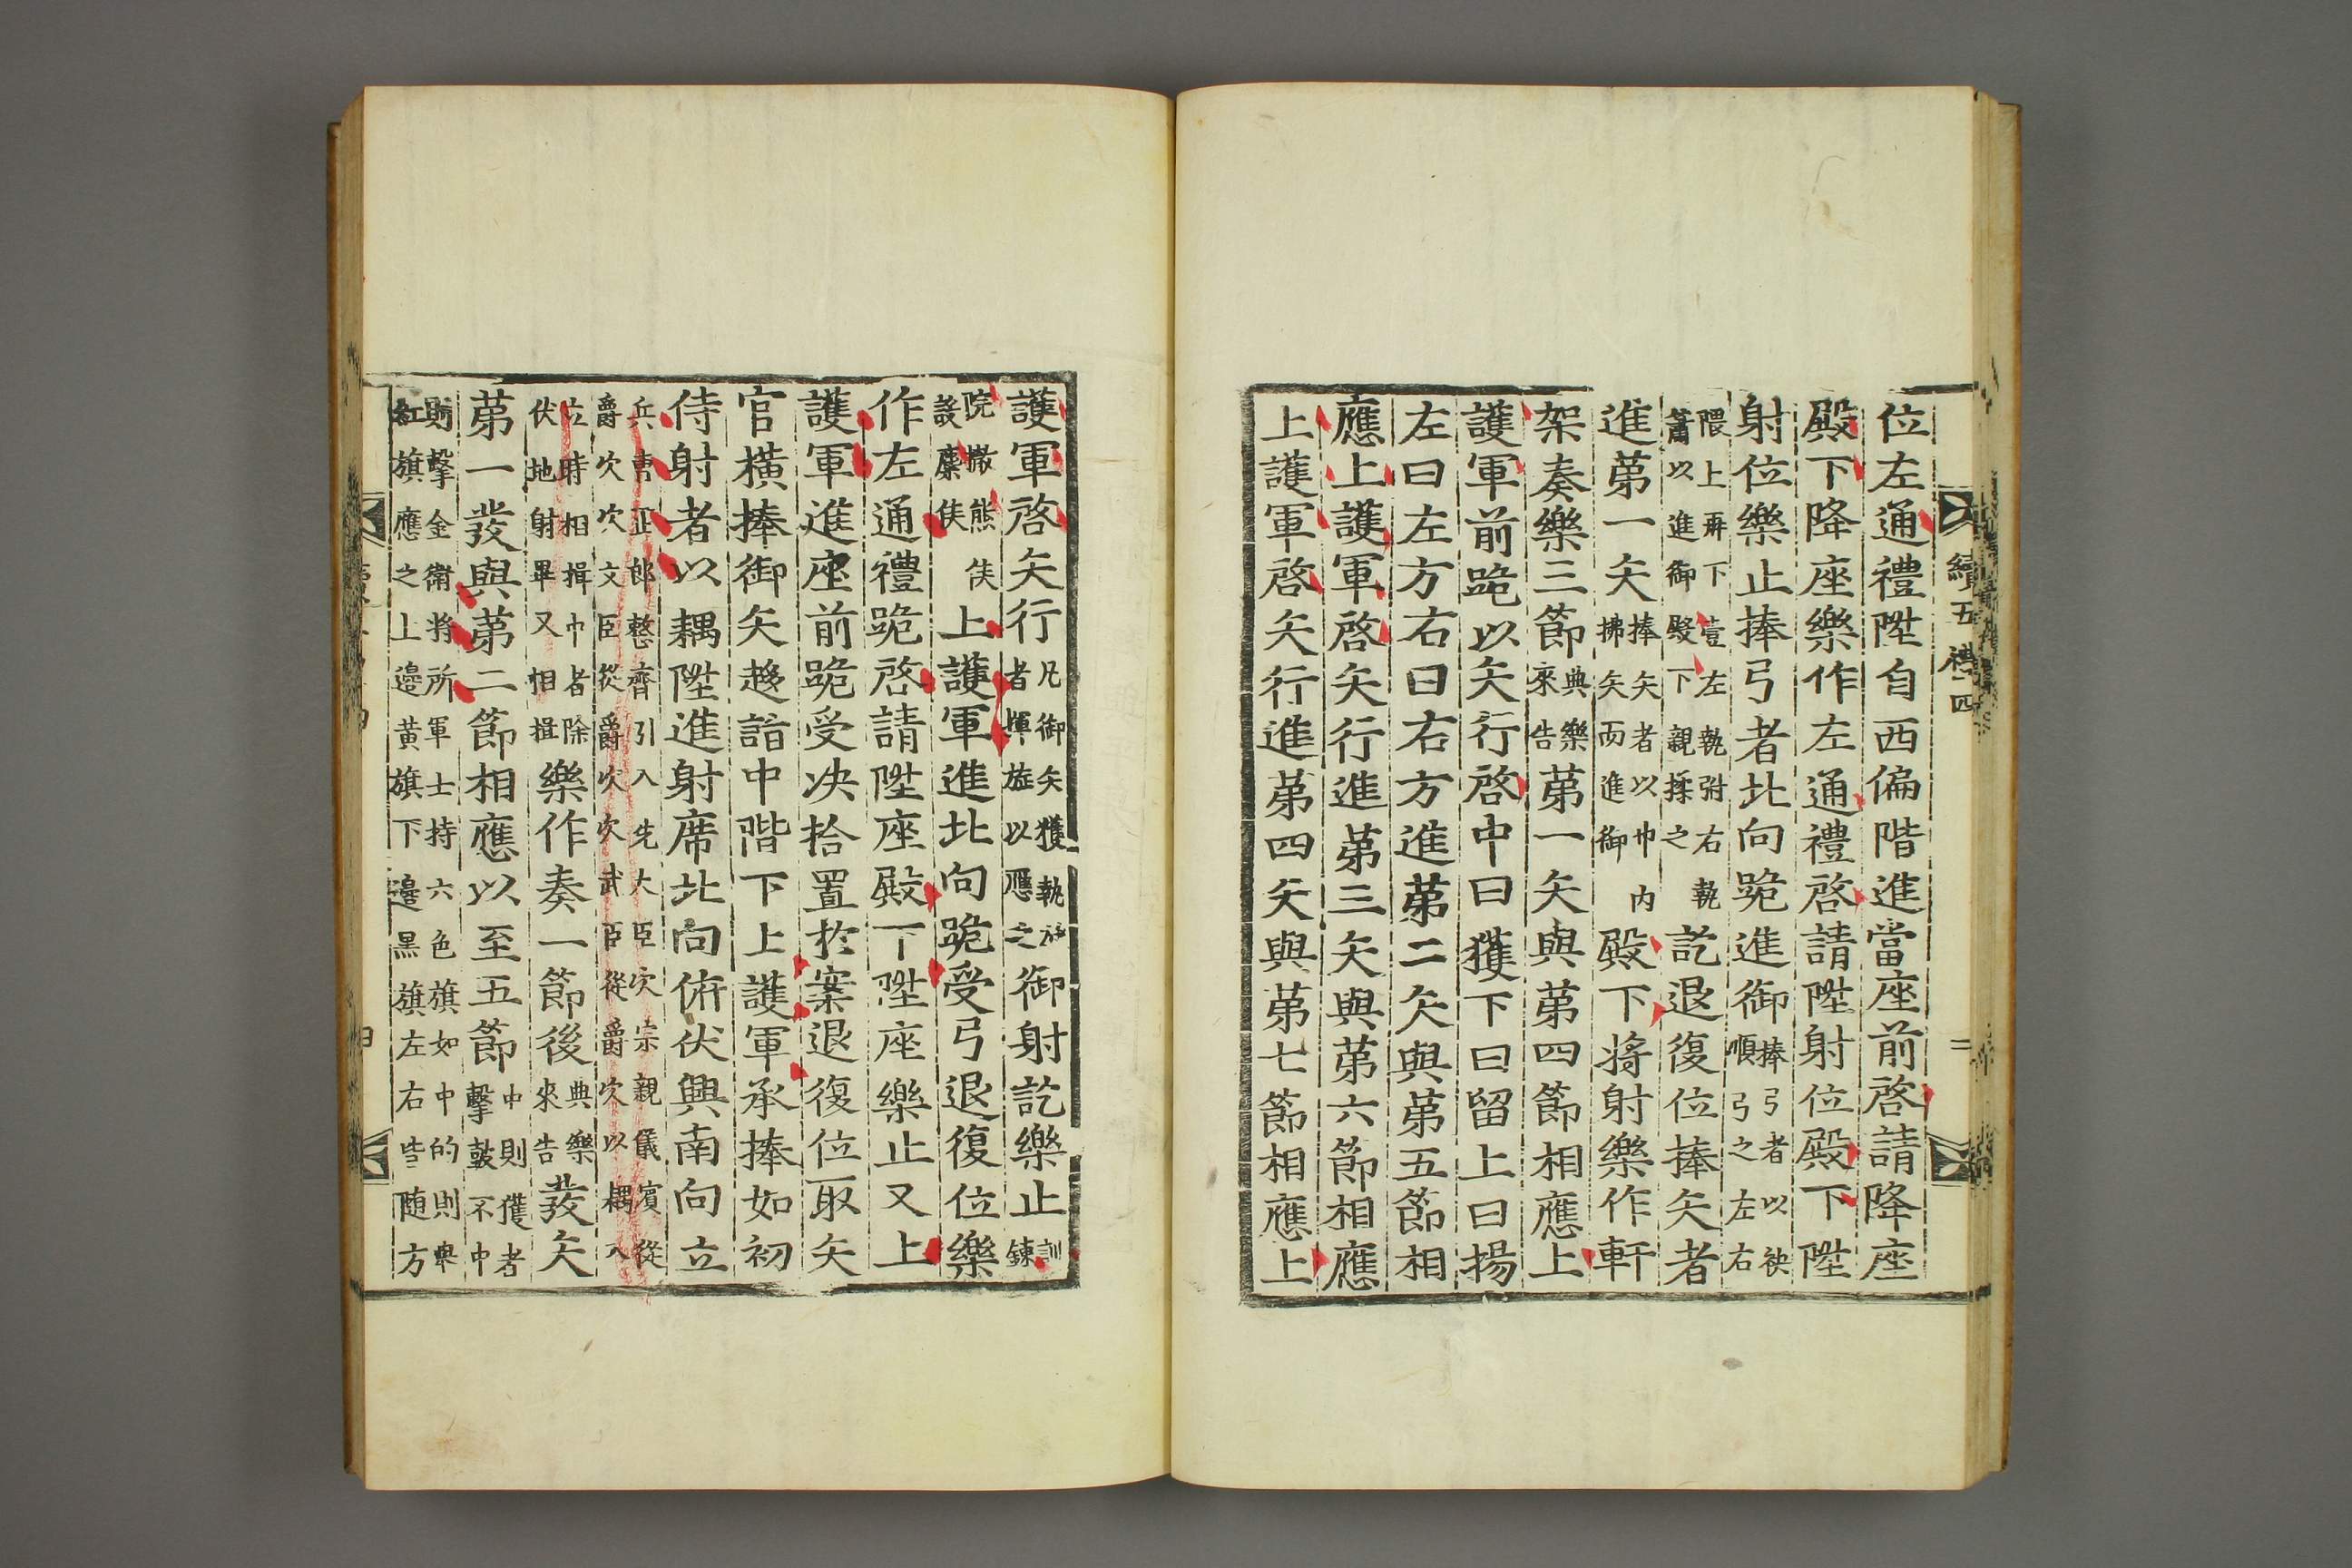 續五禮四
二
位左通禮陞自西偏階進當座前啓請降座
殿下降座樂作左通禮啓請陞射位殿下陞
射位樂止捧弓者北向跪進御捧弓者以袂順弓之左右
隈上再下壹左執弣右執簫以進御殿下親揉之訖退復位捧矢者
進苐一矢捧矢者以巾內拂矢而進御殿下將射樂作軒
架奏樂三節典樂來告苐一矢與苐四節相應上
護軍前跪以矢行啓中曰獲下曰留上曰揚
左曰左方右曰右方進苐二矢與苐五節相
應上護軍啓矢行進苐三矢與苐六節相應
上護軍啓矢行進苐四矢與苐七節相應上
護軍啓矢行凡御矢獲執旌者揮旌以應之御射訖樂止訓鍊
院撤熊侯設麋侯上護軍進北向跪受弓退復位樂
作左通禮跪啓請陞座殿下陞座樂止又上
護軍進座前跪受决拾置於案退復位取矢
官橫捧御矢趨詣中階下上護軍承捧如初
侍射者以耦陞進射席北向俯伏興南向立
兵曹正郎整齊引入先大臣次宗親儀賓從爵次次文臣從爵次次武臣從爵次以耦入
立時相揖巾者除伏地射畢又相揖樂作奏一節後典樂來告發矢
苐一發與苐二節相應以至五節中則獲者擊鼓不中
則擊金衛將所軍士持六色旗如中的則擧紅旗應之上邊黃旗下邊黑旗左右皆隨方